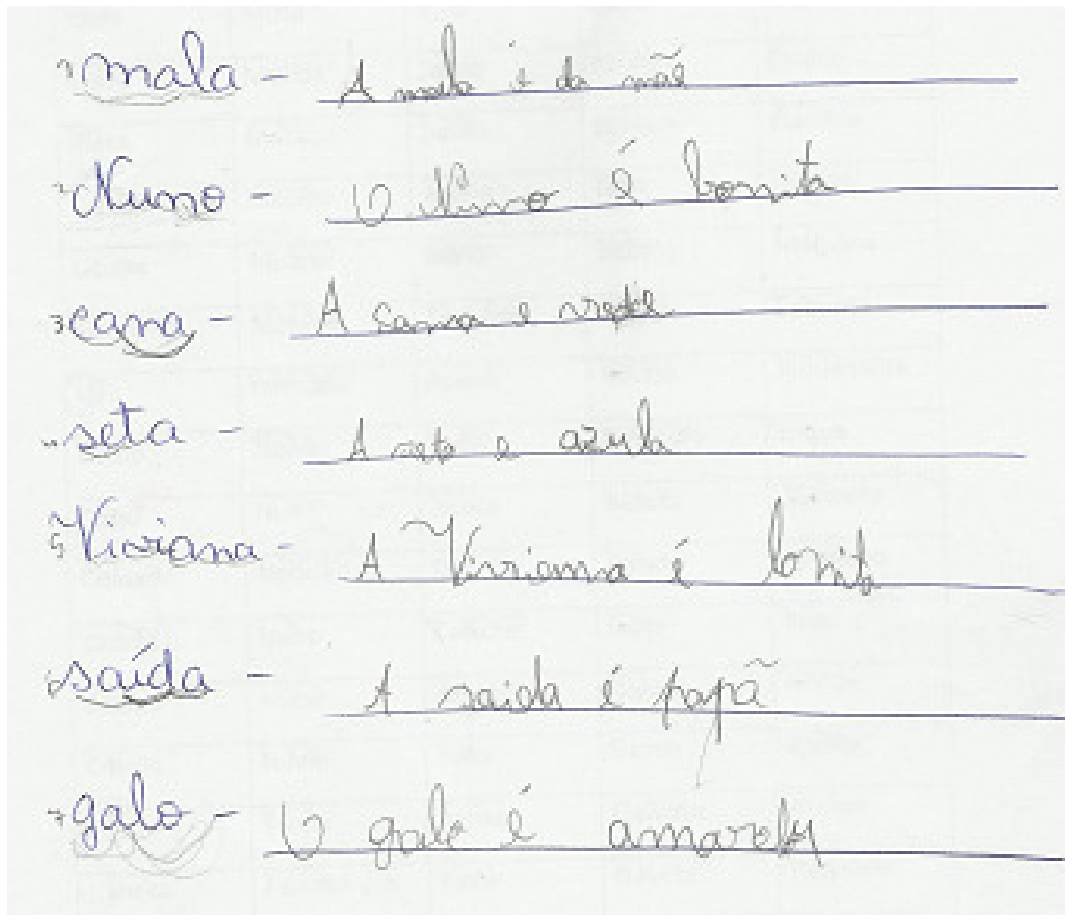 1 mala - A mala é da mãe
2 Nuno - O Nuno é bonita
3 cana - A cana e verde
4 seta - A seta e azula
5 Viviana - A Viviana é bonita
6 saída - A saida é papã
7 galo - O galo é amarelo